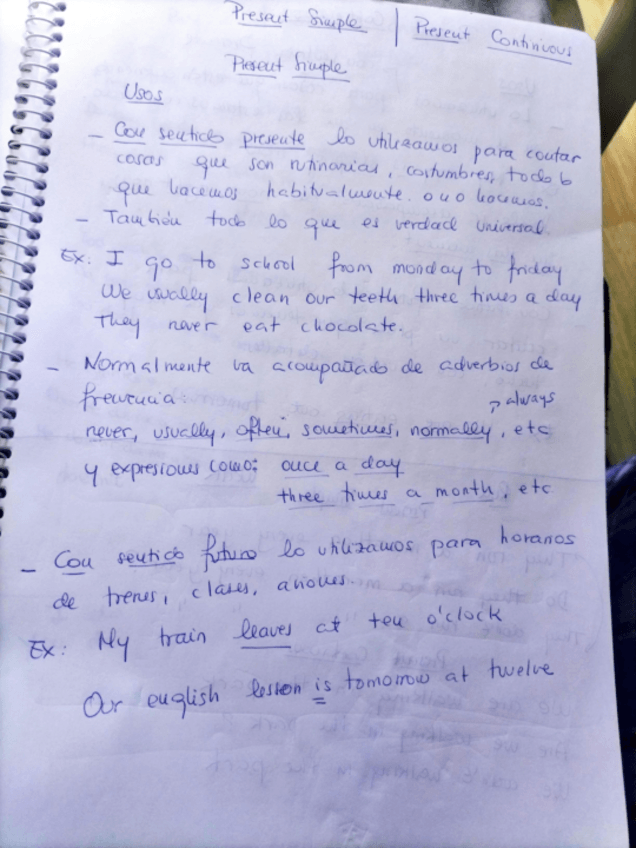 Present Simple | Present Continuous
Present Simple
Usos
- Con sentido presente lo utilizamos para contar
cosas que son rutinarias, costumbres, todo lo
que hacemos habitualmente. o no hacemos.
- También todo lo que es verdad universal.
Ex: I go to school from monday to friday
We usually clean our teeth three times a day
They never eat chocolate.
- Normalmente va acompañado de adverbios de
frecuencia:
always
never, usually, often, sometimes, normally, etc
y expresiones como: once a day
three times a month, etc
- Con sentido futuro lo utilizamos para horarios
de trenes, clases, aviones.
Ex: My train leaves at ten o'clock
Our english lesson is tomorrow at twelve